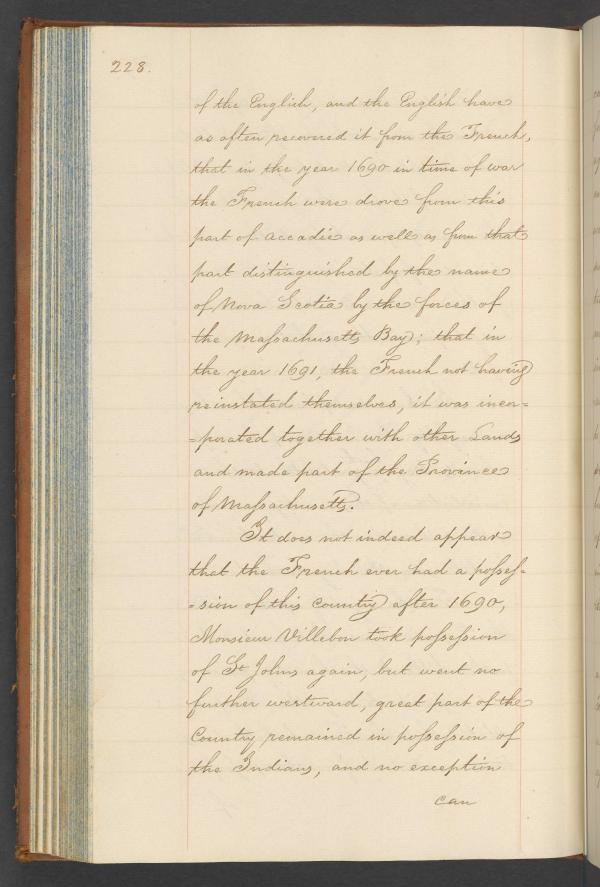 228.
of the English, and the English have
as often recovered it from the French,
that in the year 1690 in time of war
the French were drove from this
part of Accadie as well as from that
part distinguished by the name
of Nova Scotia by the forces of
the Massachusetts Bay; that in
the year 1691, the French not having
reinstated themselves, it was incor=
=porated together with other Lands
and made part of the Province
of Massachusetts.
It does not indeed appear
that the French ever had a posses=
=sion of this Country after 1690,
Monsieur Villebon took possession
of St Johns again, but went no
further westward, great part of the
Country remained in possession of
the Indians, and no exception
can